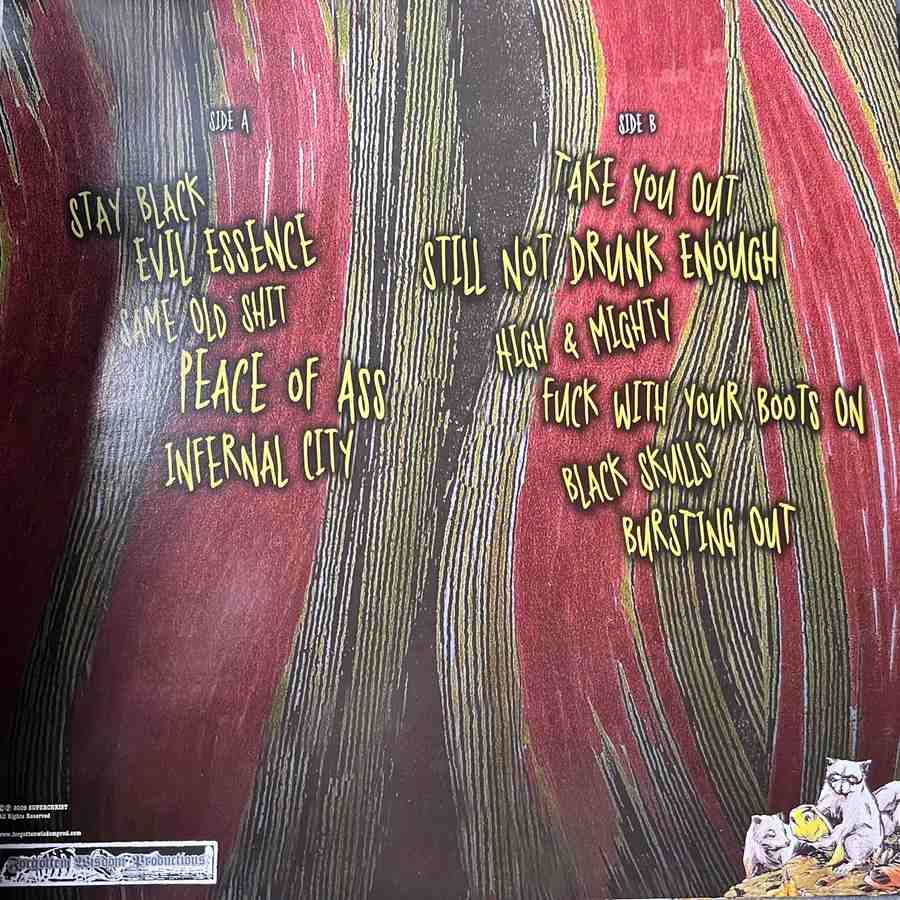 SIDE A
STAY BLACK
EVIL ESSENCE
SAME OLD SHIT
PEACE OF ASS
INFERNAL CITY
SIDE B
TAKE YOU OUT
STILL NOT DRUNK ENOUGH
HIGH & MIGHTY
FUCK WITH YOUR BOOTS ON
BLACK SKULLS
BURSTING OUT
©℗ 2009 SUPERCHRIST
All Rights Reserved
www.forgottenwisdomprod.com
Forgotten Wisdom Productions